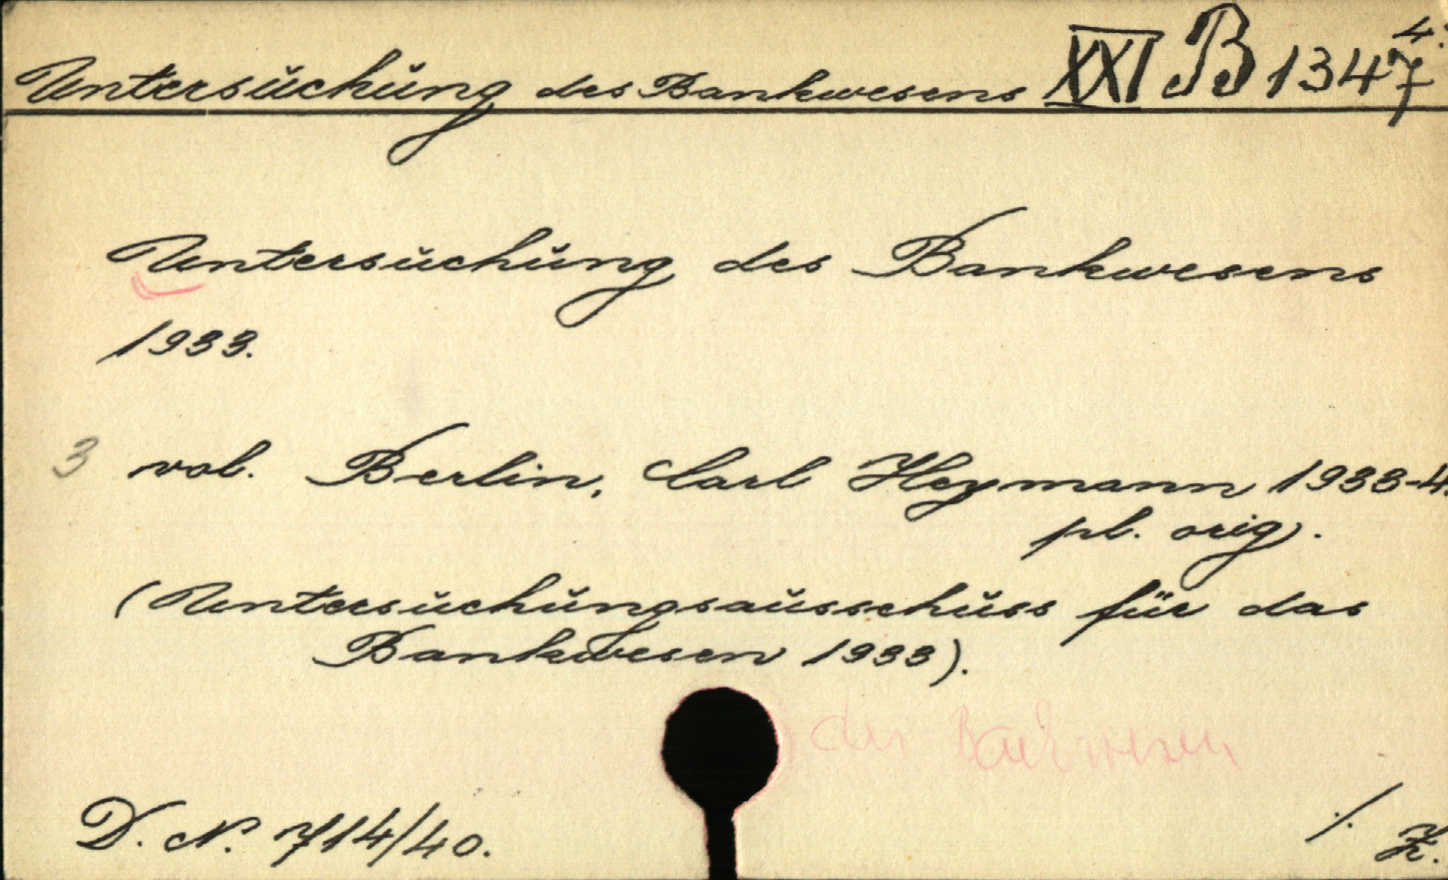 Untersuchung des Bankwesens XXI B 1347 4.
Untersuchung des Bankwesens
1933.
3 vol. Berlin, Carl Heymann 1933-4.
pl. orig.
(Untersuchungsausschuss für das
Bankwesen 1933).
D. N. 714/40.
/. Z.